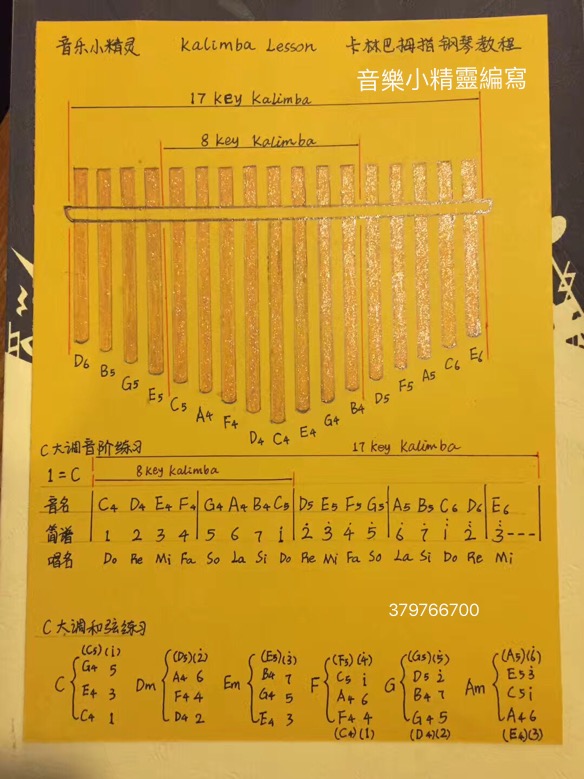 音乐小精灵 Kalimba Lesson 卡林巴拇指钢琴教程
音樂小精靈編寫
17 KEY Kalimba
8 KEY Kalimba
D6 B5 G5 E5 C5 A4 F4 D4 C4 E4 G4 B4 D5 F5 A5 C6 E6
C大调音阶练习 17 KEY Kalimba
1=C 8 KEY Kalimba
音名 C4 D4 E4 F4 G4 A4 B4 C5 D5 E5 F5 G5 A5 B5 C6 D6 E6
简谱 1 2 3 4 5 6 7 i 2̇ 3̇ 4̇ 5̇ 6̇ 7̇ i 2̇ 3̇ - - -
唱名 Do Re Mi Fa So La Si Do Re Mi Fa So La Si Do Re Mi
379766700
C大调和弦练习
(C5)(i) (D5)(2̇) (E5)(3̇) (F5)(4̇) (G5)(5̇) (A5)(6̇)
G4 5 A4 6 B4 7 C5 i D5 2̇ E5 3̇
C E4 3 Dm F4 4 Em G4 5 F A4 6 G B4 7 Am C5 i
C4 1 D4 2 E4 3 F4 4 G4 5 A4 6
(C4)(1) (D4)(2) (E4)(3)